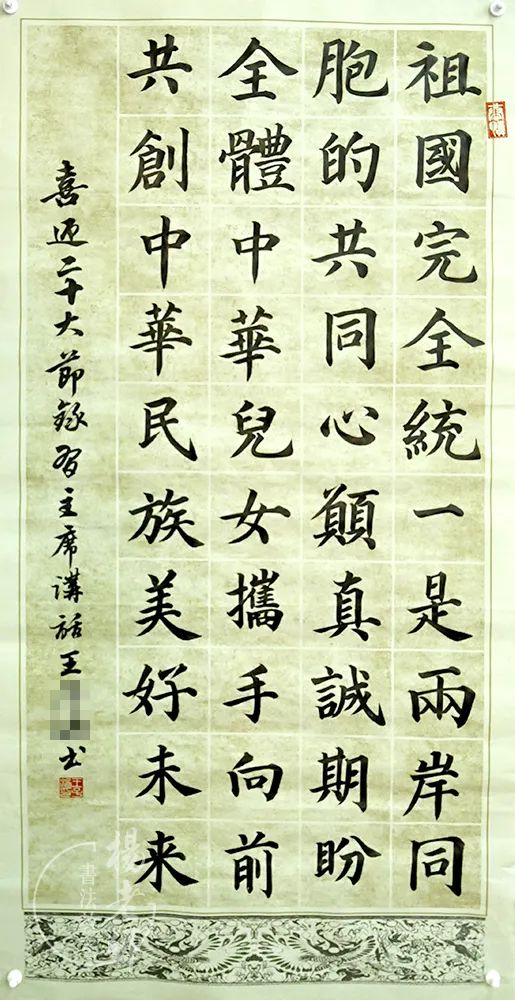 祖國完全統一是兩岸同
胞的共同心願真誠期盼
全體中華兒女攜手向前
共創中華民族美好未来
喜迎二十大節録習主席講話王
书
書法